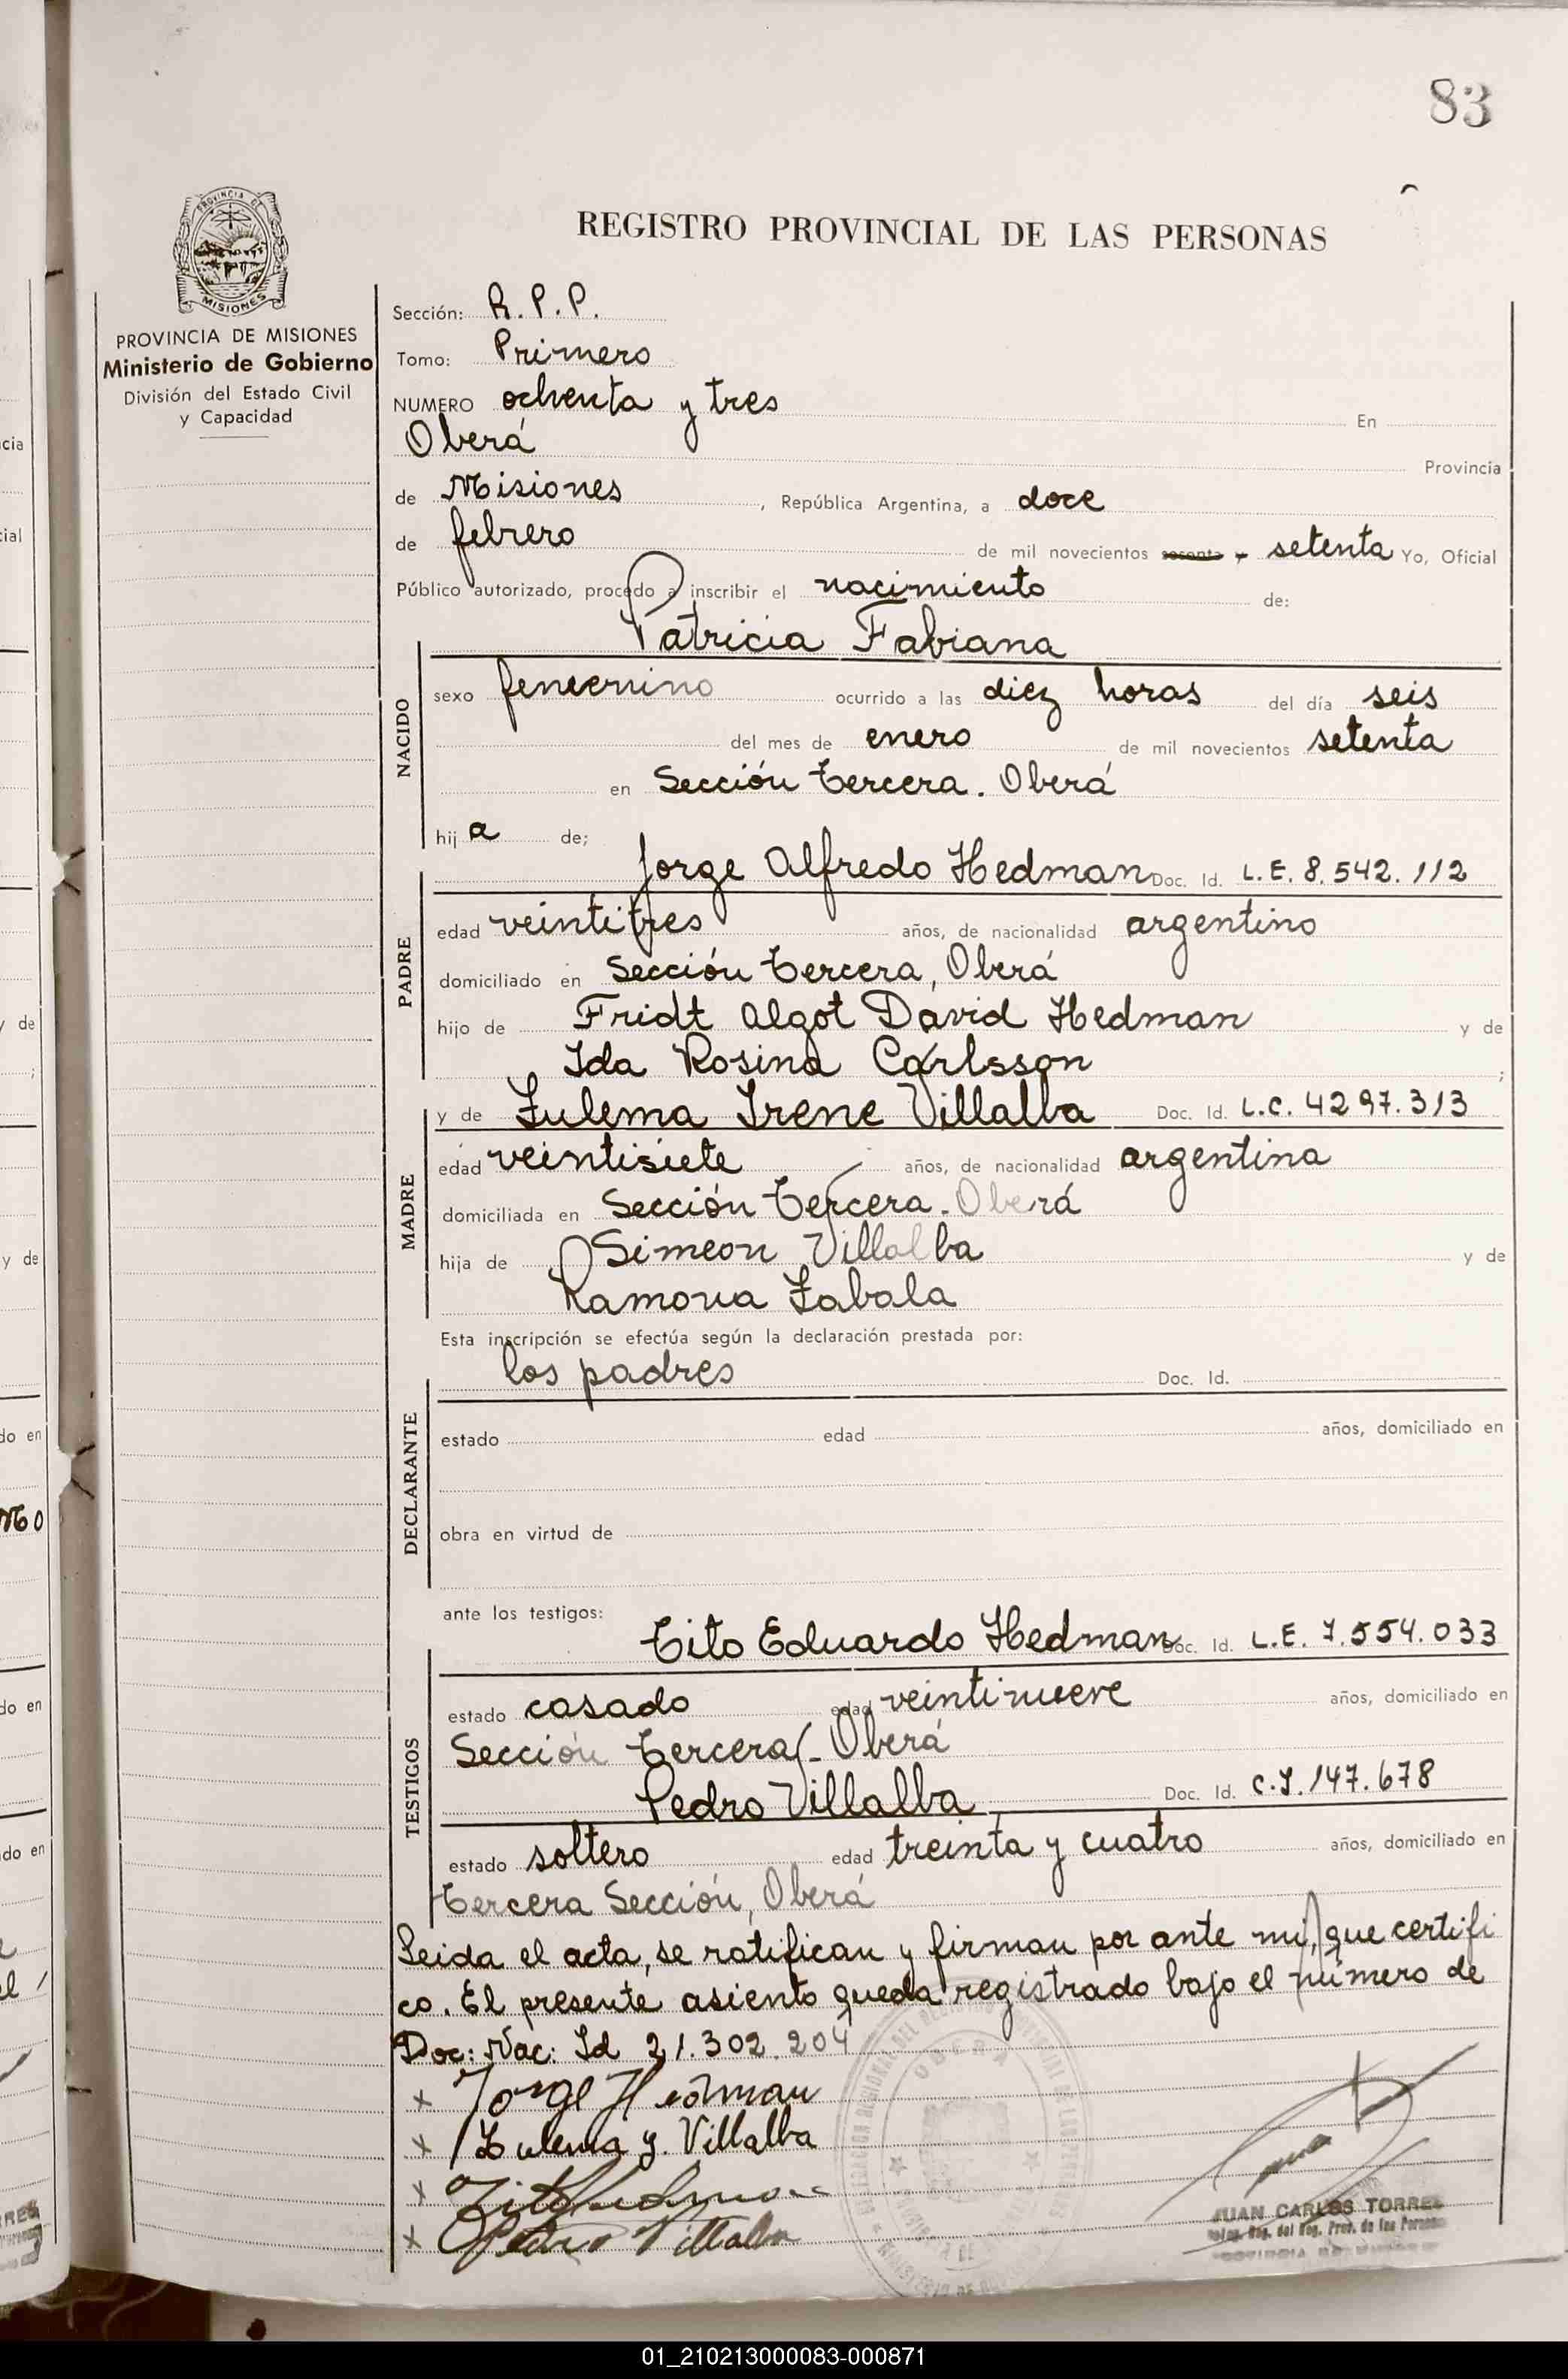 83
PROVINCIA DE
MISIONES
REGISTRO PROVINCIAL DE LAS PERSONAS
PROVINCIA DE MISIONES
Ministerio de Gobierno
División del Estado Civil
y Capacidad
Sección: R. P. P.
Tomo: Primero
NUMERO ochenta y tres En
Oberá Provincia
de Misiones, República Argentina, a doce
de febrero de mil novecientos sesenta - setenta Yo, Oficial
Público autorizado, procedo a inscribir el nacimiento de:
Patricia Fabiana
NACIDO
sexo femenino ocurrido a las diez horas del día seis
del mes de enero de mil novecientos setenta
en Sección Tercera. Oberá
hija de;
Jorge Alfredo Hedman Doc. Id. L.E. 8.542.112
PADRE
edad veintitres años, de nacionalidad argentino
domiciliado en Sección Tercera, Oberá
hijo de Fridt Algot David Hedman y de
Ida Rosina Carlsson ;
y de Zulema Irene Villalba Doc. Id. L.C. 4297.313
MADRE
edad veintisiete años, de nacionalidad argentina
domiciliada en Sección Tercera. Oberá
hija de Simeon Villalba y de
Ramona Zabala
Esta inscripción se efectúa según la declaración prestada por:
los padres Doc. Id.
DECLARANTE
estado edad años, domiciliado en
obra en virtud de
ante los testigos:
Tito Eduardo Hedman Doc. Id. L.E. 7.554.033
TESTIGOS
estado casado edad veintinueve años, domiciliado en
Sección Tercera - Oberá
Pedro Villalba Doc. Id. C.I. 147.678
estado soltero edad treinta y cuatro años, domiciliado en
Tercera Sección, Oberá
Leida el acta, se ratifican y firman por ante mi, que certifi
co. El presente asiento queda registrado bajo el número de
Doc: Nac: Id 21.302.204
x Jorge Hedman
x Zulema y. Villalba
x Tito Hedman
x Pedro Villalba
OBERA
JUAN CARLOS TORRES
01_210213000083-000871